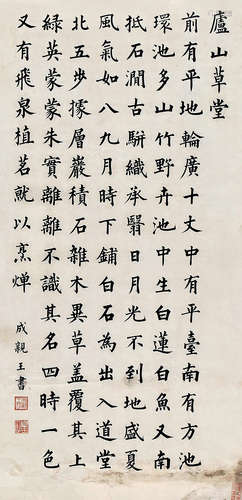 廬山草堂
前有平地輪廣十丈中有平臺南有方池
環池多山竹野卉池中生白蓮白魚又南
抵石澗古駢織承翳日月光不到地盛夏
風氣如八九月時下鋪白石為出入道堂
北五步據層巖積石雜木異草蓋覆其上
綠英蒙蒙朱實離離不識其名四時一色
又有飛泉植茗就以烹燀
成親王書